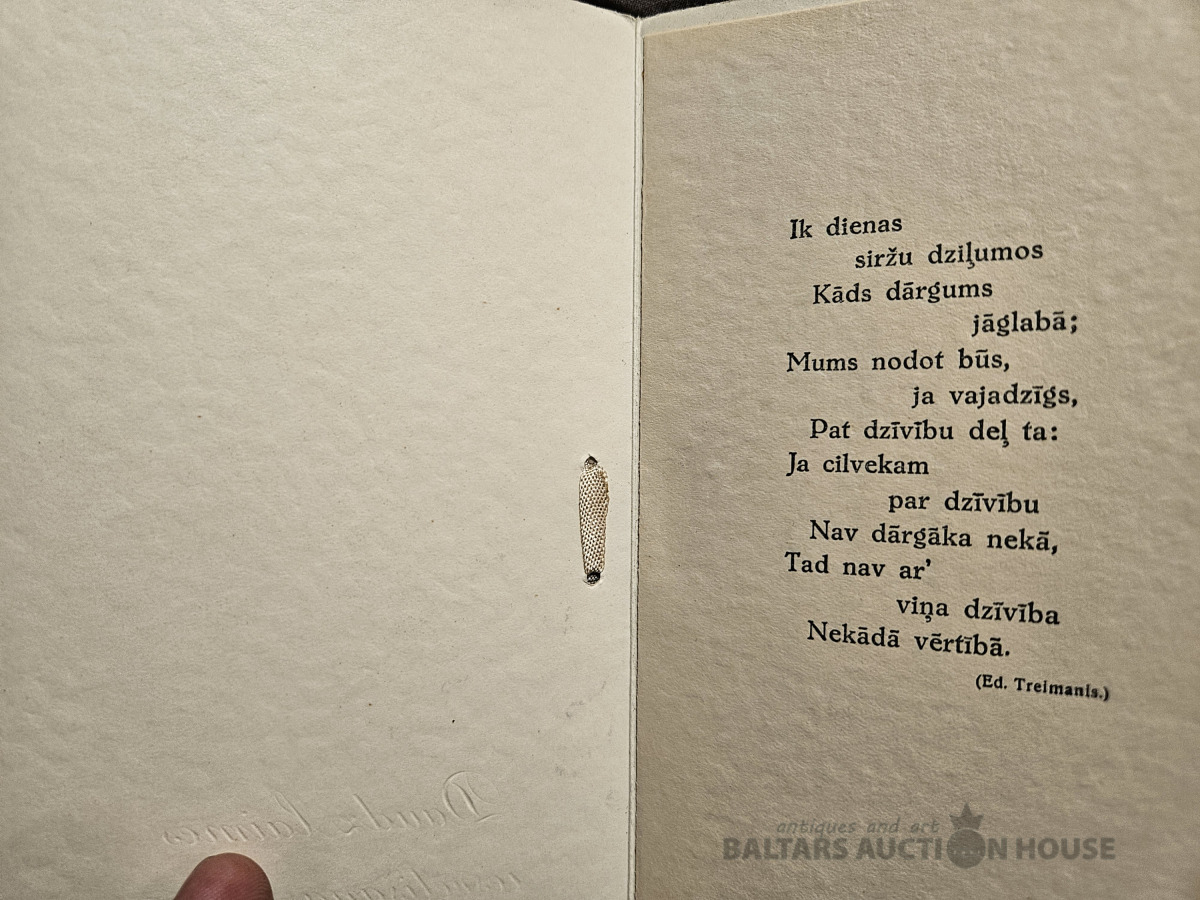 Ik dienas
siržu dziļumos
Kāds dārgums
jāglabā;
Mums nodot būs,
ja vajadzīgs,
Pat dzīvību deļ ta:
Ja cilvekam
par dzīvību
Nav dārgāka nekā,
Tad nav ar’
viņa dzīvība
Nekādā vērtībā.
(Ed. Treimanis.)
Daudz laimes
antiques and art
BALTARS AUCTION HOUSE